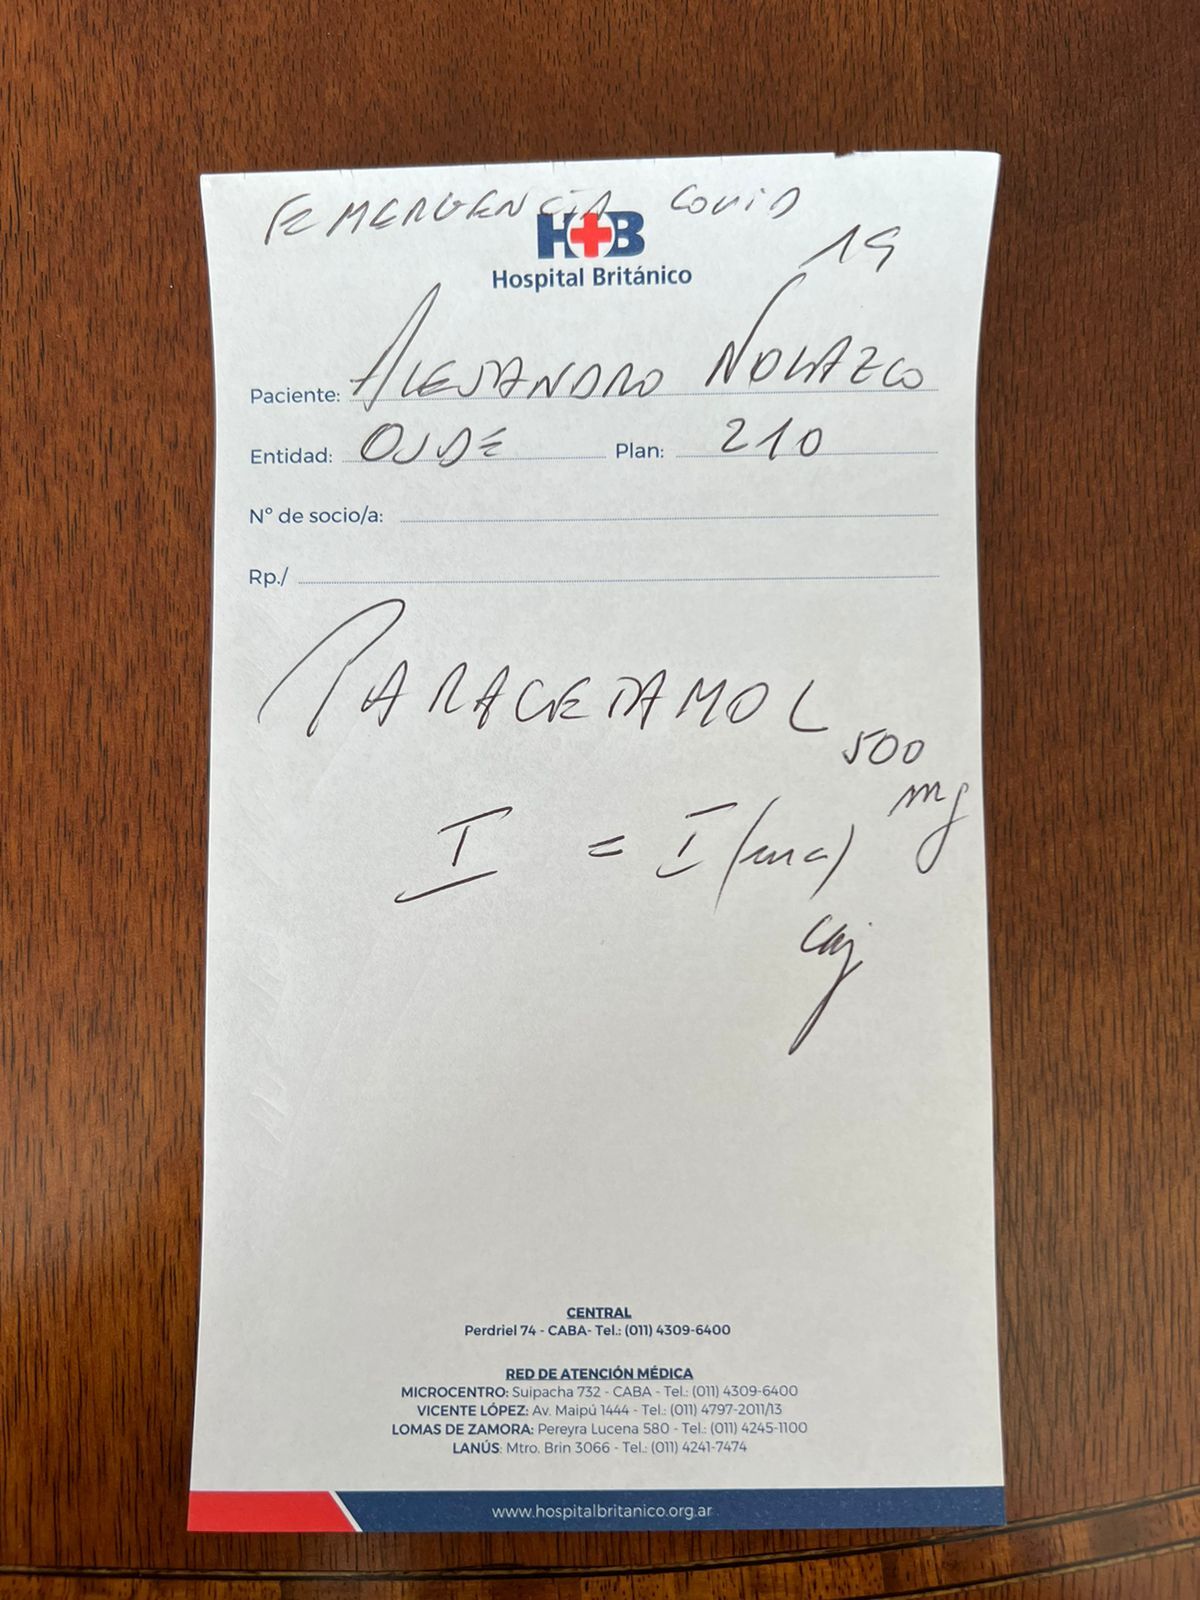 EMERGENCIA COVID
19
H+B
Hospital Británico
Paciente: ALEJANDRO NOLAZCO
Entidad: OSDE Plan: 210
Nº de socio/a:
Rp./
PARACETAMOL
500
mg
I = I (una)
caj
CENTRAL
Perdriel 74 - CABA- Tel.: (011) 4309-6400
RED DE ATENCIÓN MÉDICA
MICROCENTRO: Suipacha 732 - CABA - Tel.: (011) 4309-6400
VICENTE LÓPEZ: Av. Maipú 1444 - Tel.: (011) 4797-2011/13
LOMAS DE ZAMORA: Pereyra Lucena 580 - Tel.: (011) 4245-1100
LANÚS: Mtro. Brin 3066 - Tel.: (011) 4241-7474
www.hospitalbritanico.org.ar